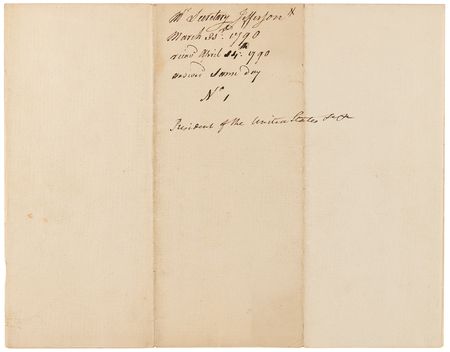 Mr. Secretary Jefferson
March 30th. 1790
recd April 14th. 1790
answd same day
No 1
President of the United States &c